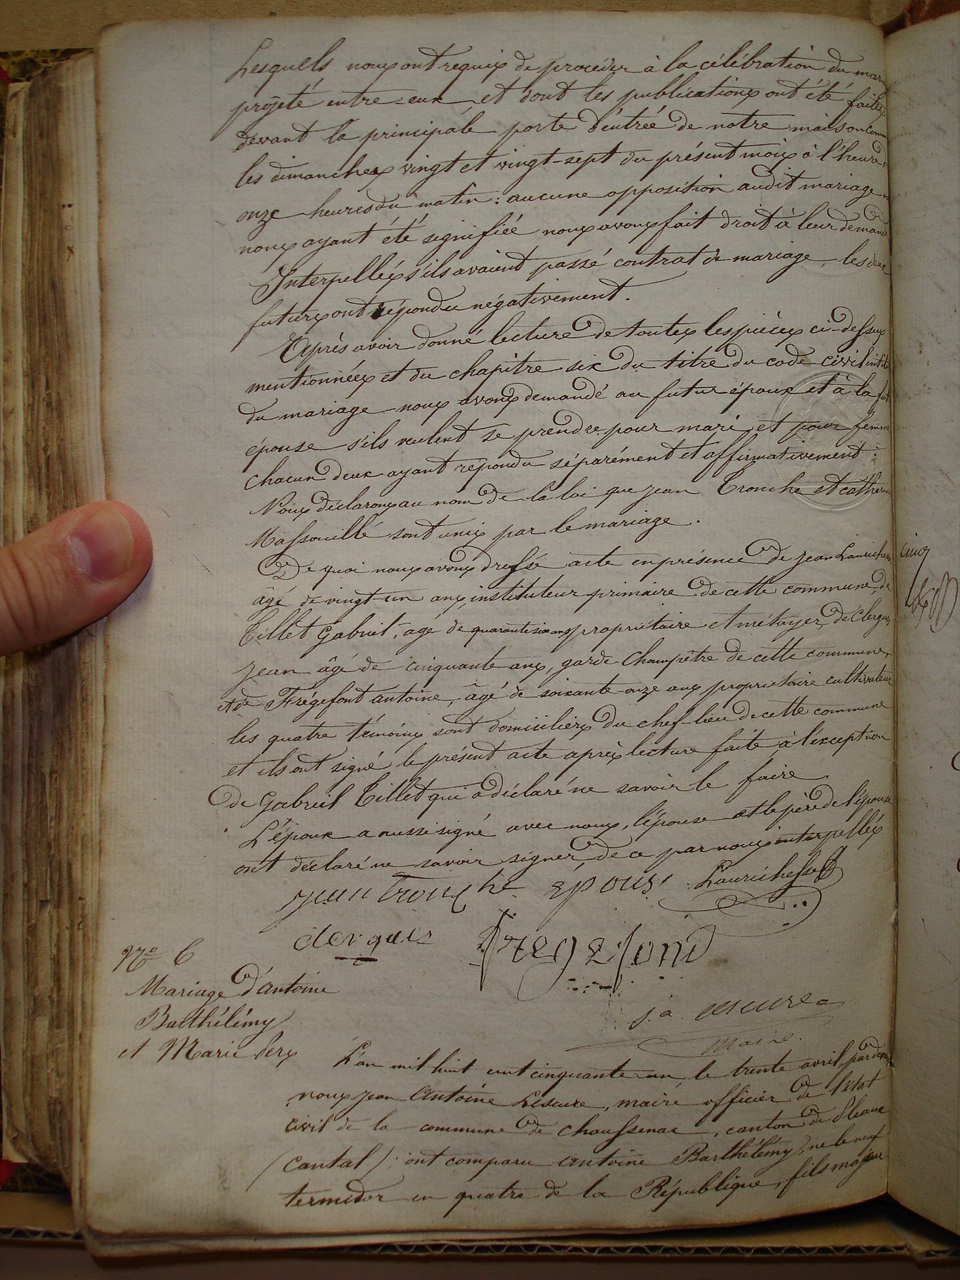 Lesquels nous ont requis de procéder à la célébration du mar
projeté entre eux et dont les publications ont été faites
devant la principale porte d'entrée de notre maison com
les dimanches vingt et vingt-sept du présent mois à l'heure
onze heures du matin : aucune opposition audit mariage
nous ayant été signifiée nous avons fait droit à leur demand
Interpellés s'ils avaient passé contrat de mariage les deux
futurs ont répondu négativement.
Après avoir donné lecture de toutes les pièces ci-dessus
mentionnées et du chapitre six du titre du code civil intit
du mariage nous avons demandé au futur époux et à la fut
épouse s'ils veulent se prendre pour mari et pour femm
chacun deux ayant répondu séparément et affirmativement :
Nous déclarons au nom de la loi que jean Tronche et cather
Massouille sont unis par le mariage.
De quoi nous avons dressé acte en présence de Jean Laurichesse
agé de vingt un ans, instituteur primaire de cette commune, de
Tillet Gabriel, agé de quarante six ans propriétaire et métayer, de Clergues
jean âgé de cinquante ans, garde champêtre de cette commune
et de Frégefont antoine, âgé de soixante onze ans propriétaire cultivateur
les quatre témoins sont domiciliés du chef lieu de cette commune
et ils ont signé le présent acte après lecture faite à l'exception
de Gabriel Tillet qui a déclaré ne savoir le faire
L'époux a aussi signé avec nous, l'épouse et le père de l'épouse
ont déclaré ne savoir signer, de ce par nous interpellés
jean tronche époux Laurichesse
clergues Fregefond
j. a. Lescure
maire.
N° 6
Mariage d'antoine
Barthélémy
et Marie Serx
L'an mil huit cent cinquante un le trente avril par dev
nous jean Antoine Lescure, maire officier de l'état
civil de la commune de chaussenac, canton de Pleaux
(cantal) ; ont comparu antoine Barthélémy, né le neuf
termidor en quatre de la République, fils majeur